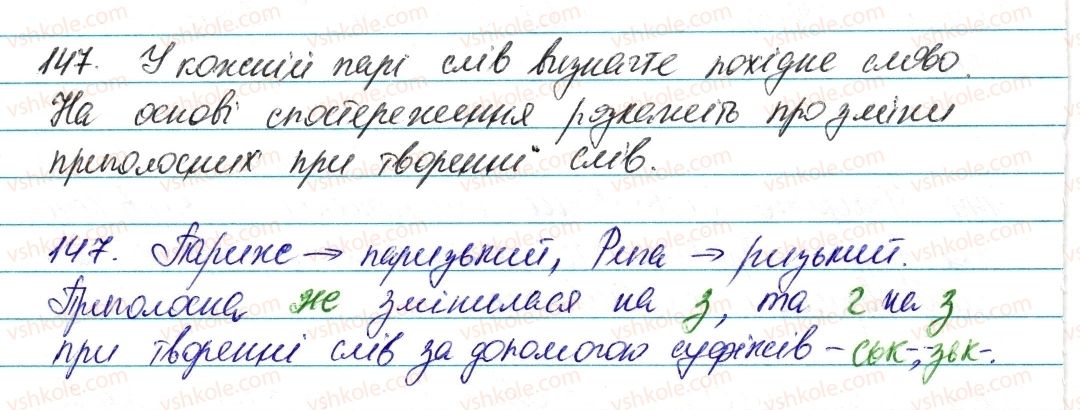 147. У кожній парі слів визначте похідне слово.
На основі спостереження розкажіть про зміни
приголосних при творенні слів.
147. Париж → паризький, Рига → ризький.
Приголосна ж змінилася на з, та г на з
при творенні слів за допомогою суфіксів -ськ-, -зьк-.